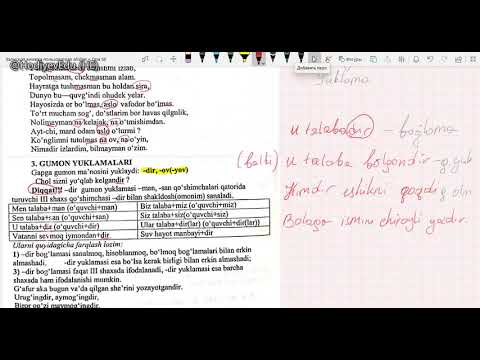 @HodiyevEdu (HE)
Topolmasam, chekmasman alam.
Hayratga tushmasman bu holdan sira,
Dunyo bu—quvg'indi ohudek yelar.
Hayosizda or bo'lmas, aslo vafodor bo'lmas.
To'rt mucham sog', do'stlarim bor havas qilgulik,
Nolimeyman na kelajak, na o'tmishimdan.
Ayt-chi, mard odam aslo o'lurmi ?
Ko'nglimni tutolmas na ov, na o'yin,
Nimadir izlardim, bilmayman o'zim.
3. GUMON YUKLAMALARI
Gapga gumon ma'nosini yuklaydi: -dir, -ov(-yov)
Chol sizni yo'qlab kelgandir ?
Diqqat!!! -dir gumon yuklamasi -man, -san qo'shimchalari qatorida
turuvchi III shaxs qo'shimchasi –dir bilan shakldosh(omonim) sanaladi.
Men talaba+man (o'quvchi+man)
Biz talaba+miz (o'quvchi+miz)
Sen talaba+san (o'quvchi+san)
Siz talaba+siz(o'quvchi+siz)
U talaba+dir (o'quvchi+dir)
Ular talaba+dir(lar) (o'quvchi+dir(lar))
Vatanni sevmoq iymondan+dir
Suv hayot manbayi+dir
Ularni quyidagicha farqlash lozim:
1) –dir bog'lamasi sanalmoq, hisoblanmoq, bo'lmoq bog'lamalari bilan erkin
almashadi. -dir yuklamasi esa bo'lsa kerak birligi bilan erkin almashadi;
3) –dir bog'lamasi faqat III shaxsda ifodalanadi, -dir yuklamasi esa barcha
shaxsda ham ifodalanishi mumkin.
G'afur aka bugun va'da qilgan she'rini yozayotgandir.
Urug'ingdir, aymog'ingdir,
Yuklama
u talabadir – bog'lama
(balki) u talaba bo'lgandir
Kimdir eshikni qoqdi
Bolaga ismini chiroyli yozdir.